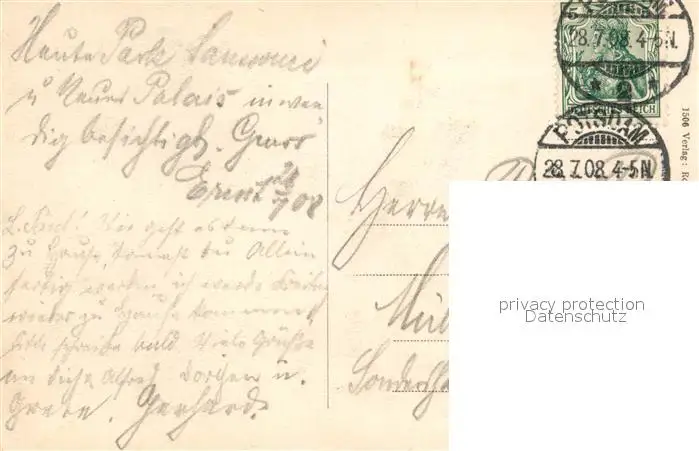 Heute Park Sanssouci
u Neues Palais inwen
dig besichtigt. Gruss
Ernst 28/7 08
L. Wie geht es denn
zu Hause, kommst du Allein
fertig werden, ich werde Freitag
wieder zu Hause kommen
bitte schreibe bald. Viele Grüße
an dich Alfred Dorchen u.
Grete. Gerhard.
5
28.7.08. 4-5N.
REICH
POTSDAM
28.7.08. 4-5N.
Herrn
Mül
Sondersha
1506 Verlag: Ro
privacy protection
Datenschutz